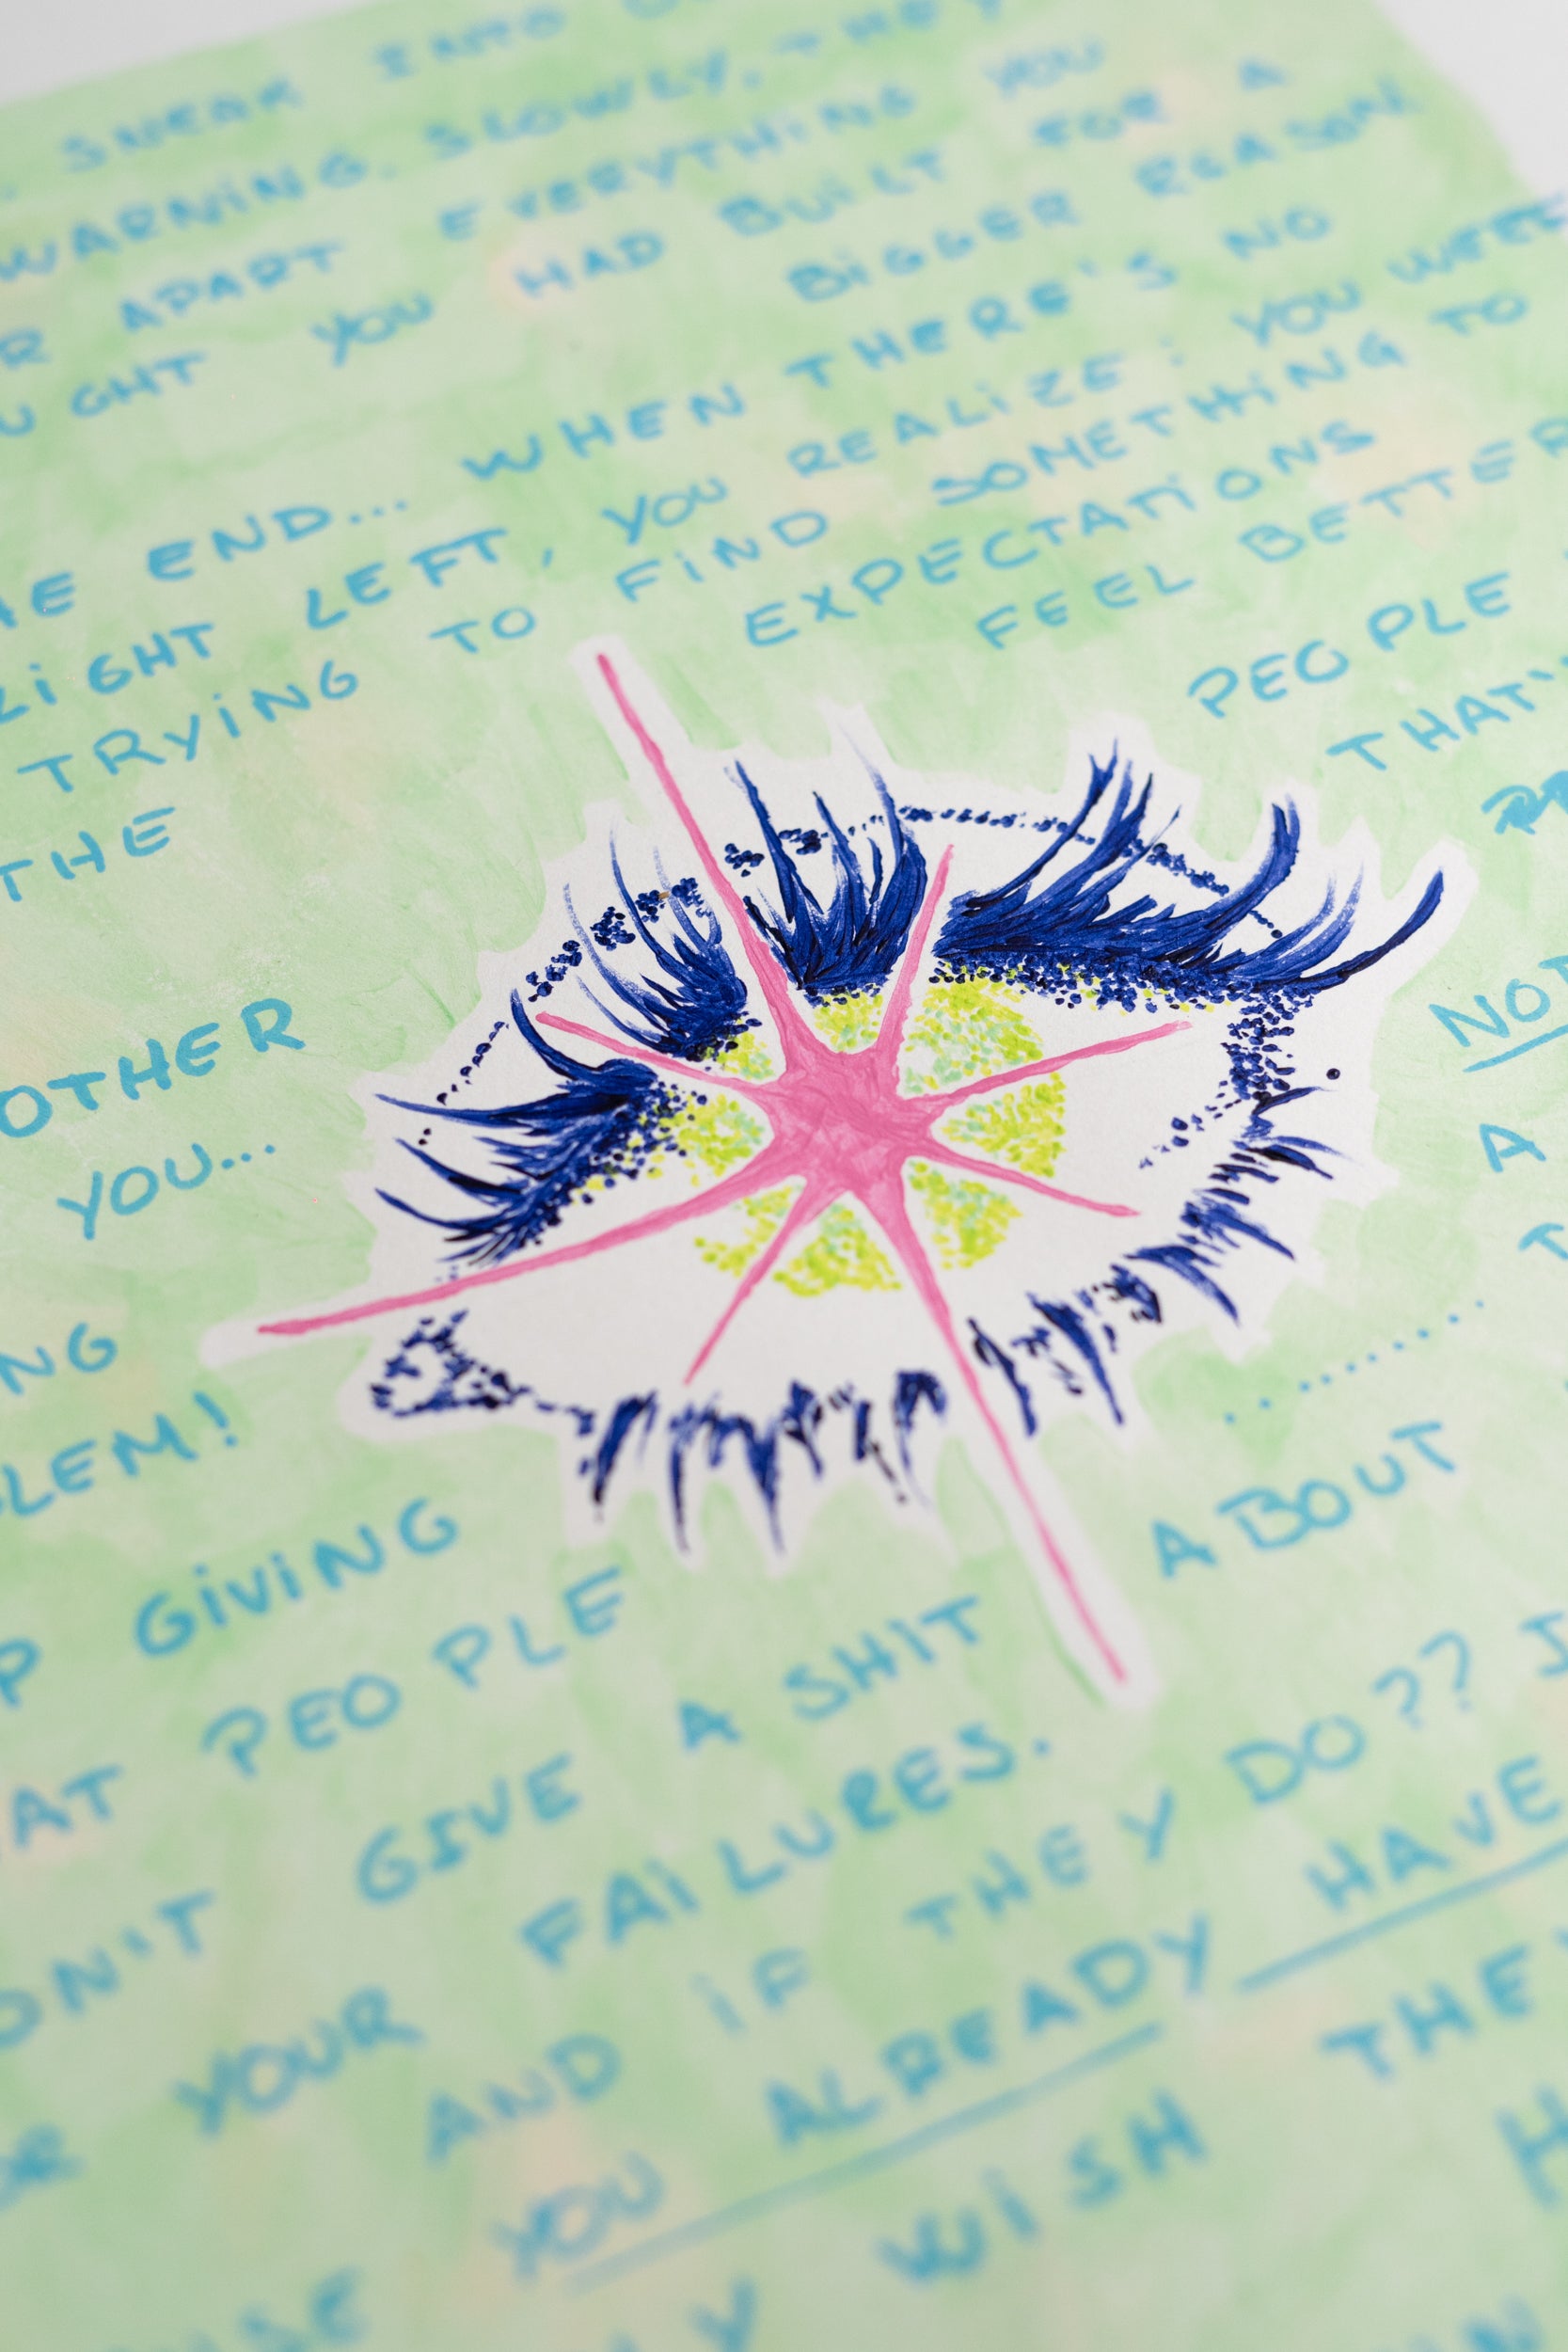 SNEAK INTO
WARNING. SLOWLY, THEY
APART EVERYTHING YOU
UGHT YOU HAD BUILT FOR A
BIGGER REASON
HE END... WHEN THERE'S NO
LIGHT LEFT, YOU REALIZE: YOU WERE
TRYING TO FIND SOMETHING TO
THE EXPECTATIONS
FEEL BETTER
OTHER PEOPLE
YOU... THAT'
NOT
A
NG
LEM!
P GIVING
AT PEOPLE
ON'T GIVE A SHIT ABOUT
YOUR FAILURES.
AND IF THEY DO?? I
YOU ALREADY HAVE
WISH THEY